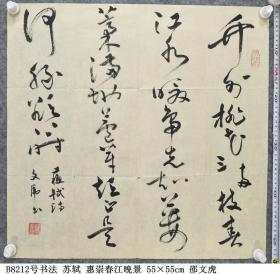 竹外桃花三两枝春
江水暖鸭先知蒌
蒿满地芦芽短正是
河豚欲上时
苏轼诗
文虎书
B8212号书法 苏轼 惠崇春江晚景 55×55cm 邵文虎